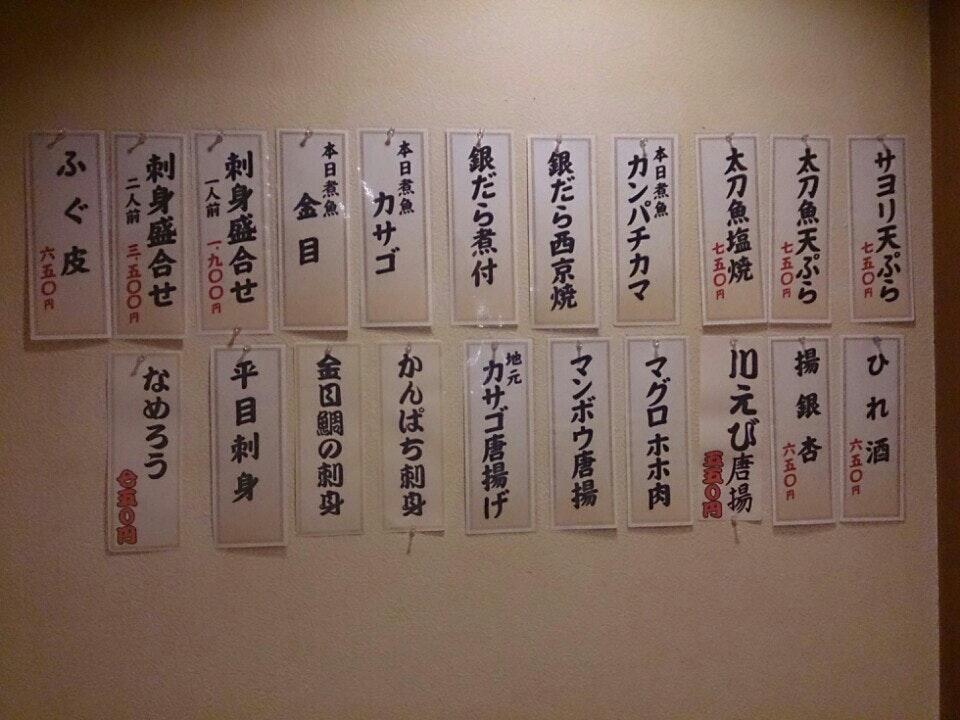 サヨリ天ぷら
七五〇円
太刀魚天ぷら
七五〇円
太刀魚塩焼
七五〇円
本日煮魚
カンパチカマ
銀だら西京焼
銀だら煮付
本日煮魚
カサゴ
本日煮魚
金目
刺身盛合せ
一人前 一、九〇〇円
刺身盛合せ
二人前 三、五〇〇円
ふぐ皮
六五〇円
ひれ酒
六五〇円
揚銀杏
六五〇円
川えび唐揚
五五〇円
マグロホホ肉
マンボウ唐揚
地元
カサゴ唐揚げ
かんぱち刺身
金目鯛の刺身
平目刺身
なめろう
七五〇円